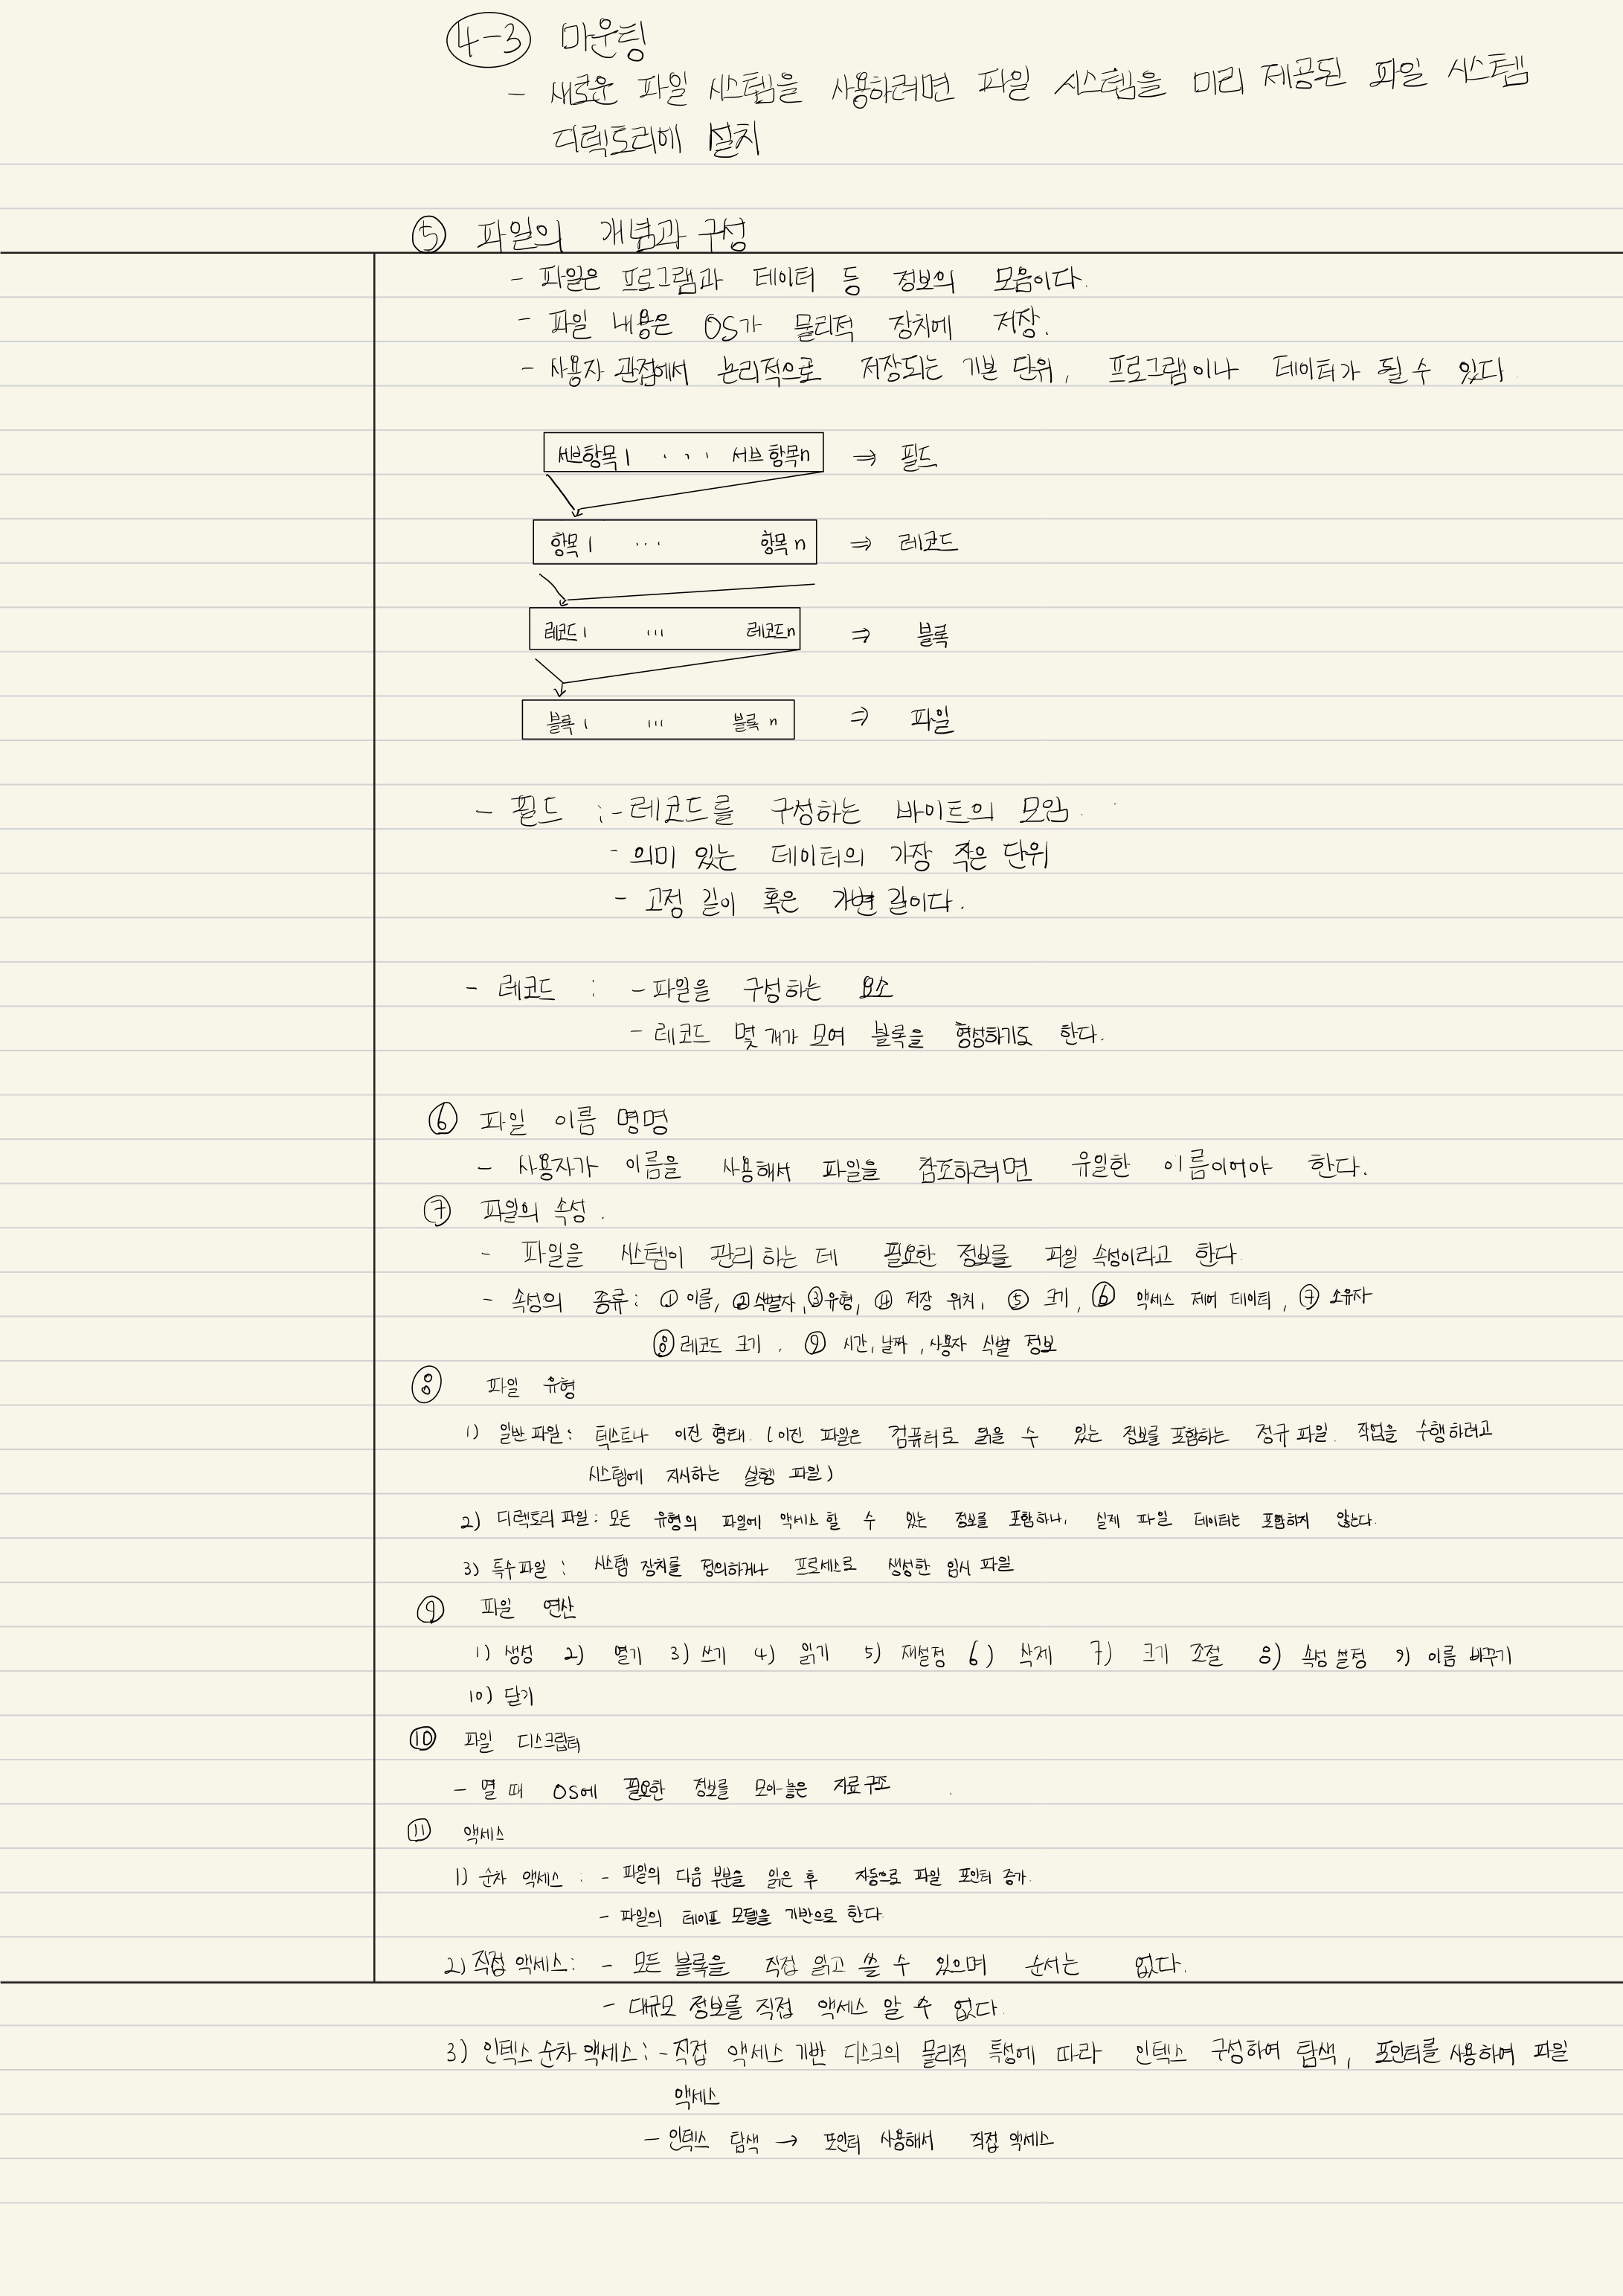 4-3 마운팅
- 새로운 파일 시스템을 사용하려면 파일 시스템을 미리 제공된 파일 시스템
디렉토리에 설치
⑤ 파일의 개념과 구성
- 파일은 프로그램과 데이터 등 정보의 모음이다.
- 파일 내용은 OS가 물리적 장치에 저장.
- 사용자 관점에서 논리적으로 저장되는 기본 단위, 프로그램이나 데이터가 될 수 있다
서브항목1 ··· 서브항목n ⇒ 필드
항목1 ··· 항목n ⇒ 레코드
레코드1 ··· 레코드n ⇒ 블록
블록1 ··· 블록n ⇒ 파일
- 필드 : - 레코드를 구성하는 바이트의 모임.
- 의미 있는 데이터의 가장 작은 단위
- 고정 길이 혹은 가변 길이다.
- 레코드 : - 파일을 구성하는 요소
- 레코드 몇 개가 모여 블록을 형성하기도 한다.
⑥ 파일 이름 명명
- 사용자가 이름을 사용해서 파일을 참조하려면 유일한 이름이어야 한다.
⑦ 파일의 속성.
- 파일을 시스템이 관리 하는 데 필요한 정보를 파일 속성이라고 한다.
- 속성의 종류 : ① 이름, ② 식별자, ③ 유형, ④ 저장 위치, ⑤ 크기, ⑥ 액세스 제어 데이터, ⑦ 소유자
⑧ 레코드 크기, ⑨ 시간, 날짜, 사용자 식별 정보
⑧ 파일 유형
1) 일반 파일 : 텍스트나 이진 형태. (이진 파일은 컴퓨터로 읽을 수 있는 정보를 포함하는 정규 파일. 작업을 수행하려고
시스템에 지시하는 실행 파일)
2) 디렉토리 파일 : 모든 유형의 파일에 액세스 할 수 있는 정보를 포함하나, 실제 파일 데이터는 포함하지 않는다.
3) 특수 파일 : 시스템 장치를 정의하거나 프로세스로 생성한 임시 파일
⑨ 파일 연산
1) 생성 2) 열기 3) 쓰기 4) 읽기 5) 재설정 6) 삭제 7) 크기 조절 8) 속성 설정 9) 이름 바꾸기
10) 닫기
⑩ 파일 디스크립터
- 열 때 OS에 필요한 정보를 모아놓은 자료구조
⑪ 액세스
1) 순차 액세스 : - 파일의 다음 부분을 읽은 후 자동으로 파일 포인터 증가.
- 파일의 테이프 모델을 기반으로 한다.
2) 직접 액세스 : - 모든 블록을 직접 읽고 쓸 수 있으며 순서는 없다.
- 대규모 정보를 직접 액세스 할 수 없다.
3) 인덱스 순차 액세스 : - 직접 액세스 기반 디스크의 물리적 특성에 따라 인덱스 구성하여 탐색, 포인터를 사용하여 파일
액세스
- 인덱스 탐색 → 포인터 사용해서 직접 액세스